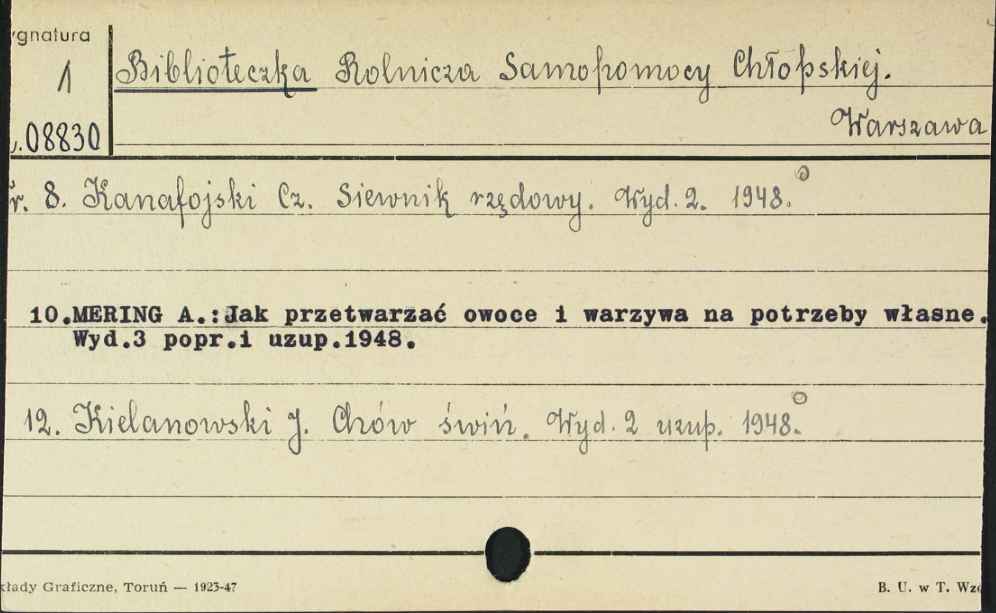 ygnatura
1
.08830
Biblioteczka Rolnicza Samopomocy Chłopskiej.
Warszawa
r. 8. Kanafojski Cz. Siewnik rzędowy. Wyd. 2. 1948.
10.MERING A.:Jak przetwarzać owoce i warzywa na potrzeby własne.
Wyd.3 popr.i uzup.1948.
12. Kielanowski J. Chów świń. Wyd. 2 uzup. 1948.
kłady Graficzne, Toruń — 1923-47
B. U. w T. Wzó